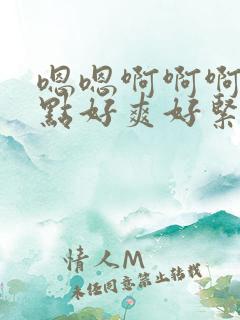 嗯嗯啊啊啊
點好爽好緊
情人M
未经同意禁止转载